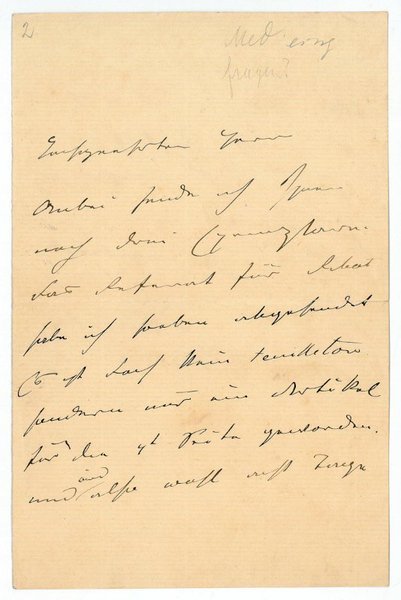 2
Med
fragen?
Hochgeehrter Herr
Anbei sende ich Ihnen
noch drei
Das Referat für
habe ich soeben abgesendet
Es ist doch kein Feuilleton
sondern nur ein Artikel
für die 4te Seite geworden.
und wird also wohl erst